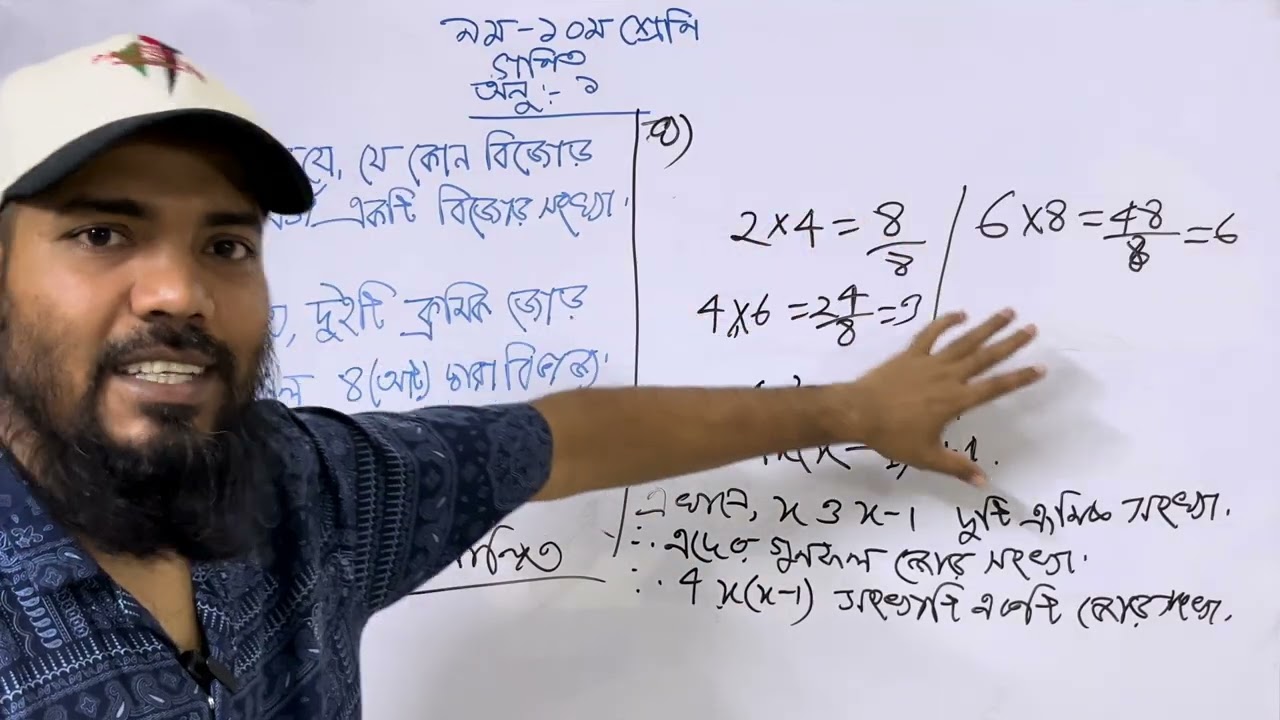 ৯ম-১০ম শ্রেণি
গণিত
অনু:- ১
যে, যে কোন বিজোড়
একটি বিজোড় সংখ্যা।
দুইটি ক্রমিক জোড়
৪(আট) দ্বারা বিভাজ্য
2×4 = 8/8
4×6 = 24/8 = 3
6×8 = 48/8 = 6
এখানে, x ও x-1 দুটি ক্রমিক সংখ্যা.
∴ এদের গুনফল জোড় সংখ্যা.
∴ 4x(x-1) সংখ্যাটি একটি জোড় সংখ্যা.